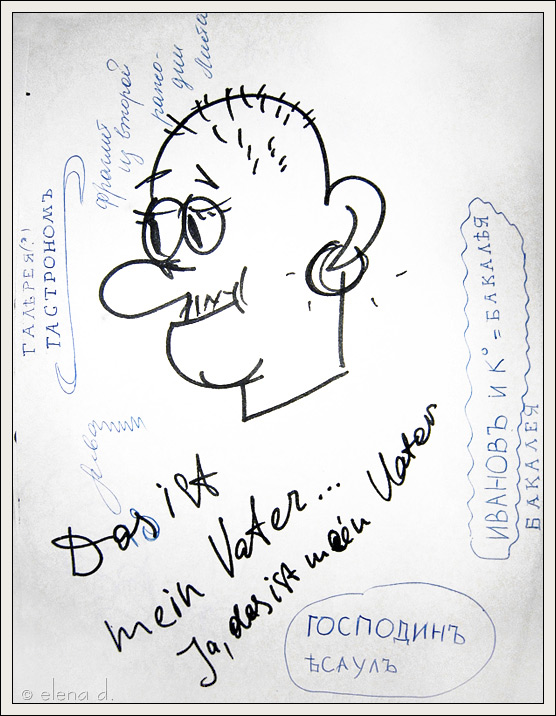 из второй
рапсо-
дии
Листа
ГАЛѢРЕЯ(?)
ГАСТРОНОМЪ
ИВАНОВЪ И К° = БАКАЛѢЯ
БАКАЛЕЯ
Das ist
mein Vater...
Ja, das ist mein Vater
ГОСПОДИНЪ
ѢСАУЛЪ
© elena d.